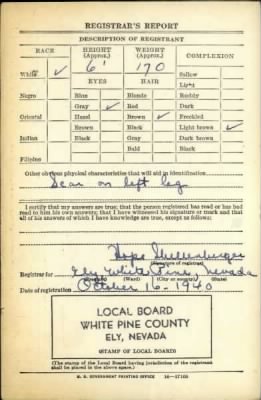 REGISTRAR'S REPORT
DESCRIPTION OF REGISTRANT
RACE HEIGHT (Approx.) WEIGHT (Approx.) COMPLEXION
White ✓ 6' 170 Sallow
EYES HAIR Light
Negro Blue Blonde Ruddy
Gray ✓ Red Dark
Oriental Hazel Brown ✓ Freckled
Brown Black Light brown ✓
Indian Black Gray Dark brown
Bald Black
Filipino
Other obvious physical characteristics that will aid in identification
Scar on left leg
I certify that my answers are true; that the person registered has read or has had
read to him his own answers; that I have witnessed his signature or mark and that
all of his answers of which I have knowledge are true, except as follows:
Hope Shellenbarger
(Signature of registrar)
Registrar for Ely White Pine, Nevada
(Ward) (City or county) (State)
Date of registration October 16 - 1940
LOCAL BOARD
WHITE PINE COUNTY
ELY, NEVADA
(STAMP OF LOCAL BOARD)
(The stamp of the Local Board having jurisdiction of the registrant
shall be placed in the above space.)
U. S. GOVERNMENT PRINTING OFFICE 16—17105